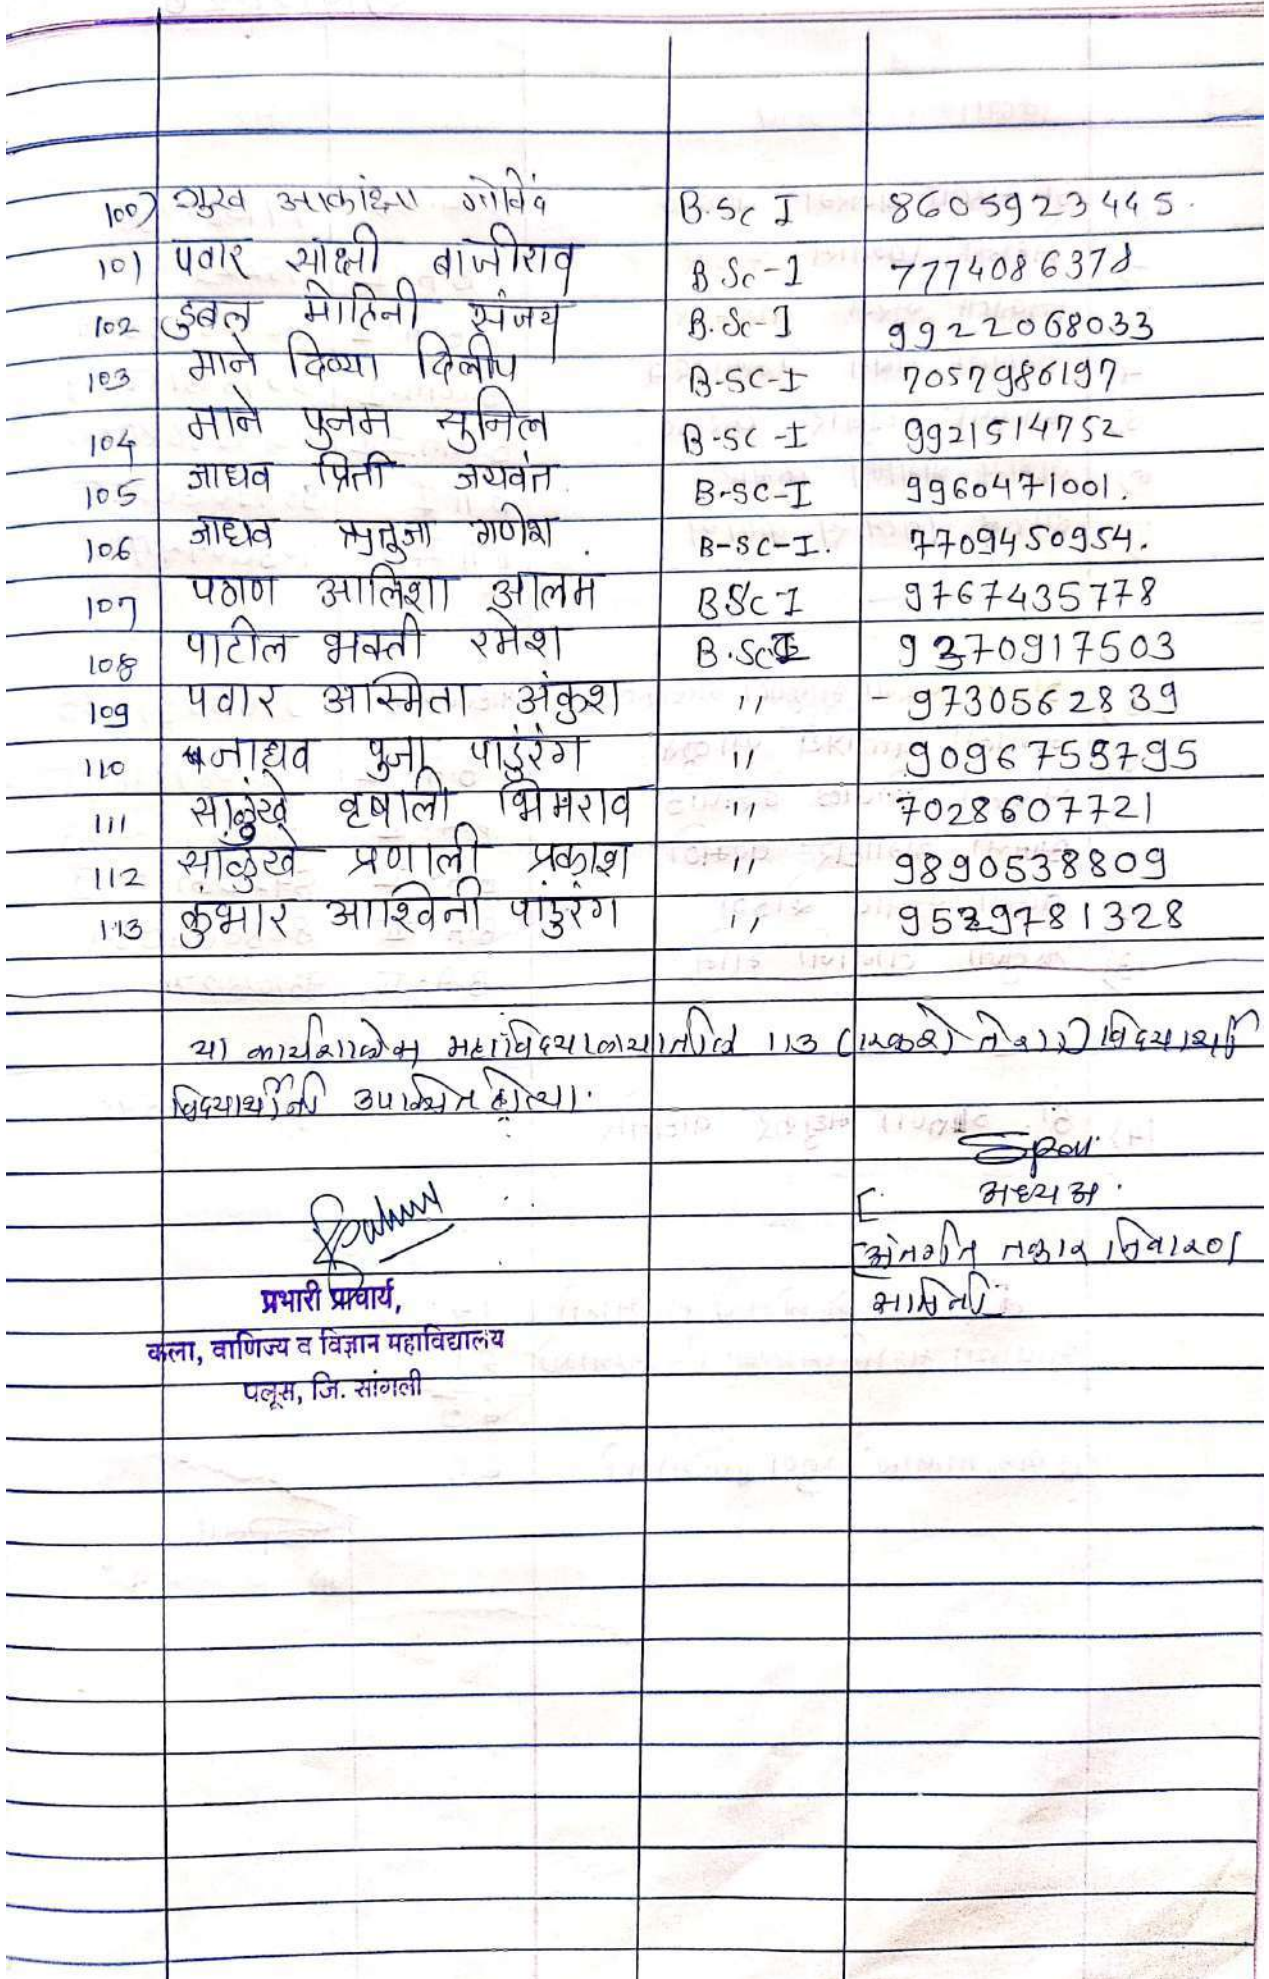 100) गुरव आकांक्षा गोविंद B.Sc I 8605923445.
101 पवार साक्षी बाजीराव B.Sc-I 7774086378
102 डुबल मोहिनी संजय B.Sc-I 9922068033
103 माने दिव्या दिलीप B-SC-I 7057986197
104 माने पुनम सुनिल B-SC-I 9921514752
105 जाधव प्रिती जयवंत. B-SC-I 9960471001.
106 जाधव ऋतुजा गणेश. B-SC-I. 7709450954.
107 पठाण आलिशा आलम BSc I 9767435778
108 पाटील भक्ती रमेश B.Sc I 9370917503
109 पवार अस्मिता अंकुश " 9730562839
110 जाधव पुजा पांडुरंग " 9096759795
111 साळुंखे वृषाली भिमराव " 7028607721
112 साळुंखे प्रणाली प्रकाश " 9890538809
113 कुंभार आश्विनी पांडुरंग " 9529781328
या कार्यशाळेस महाविद्यालयातील 113 (एकशे तेरा) विद्यार्थी
विद्यार्थीनी उपस्थित होत्या.
अध्यक्ष.
अंतर्गत तक्रार निवारण
समिती
प्रभारी प्राचार्य,
कला, वाणिज्य व विज्ञान महाविद्यालय
पलूस, जि. सांगली